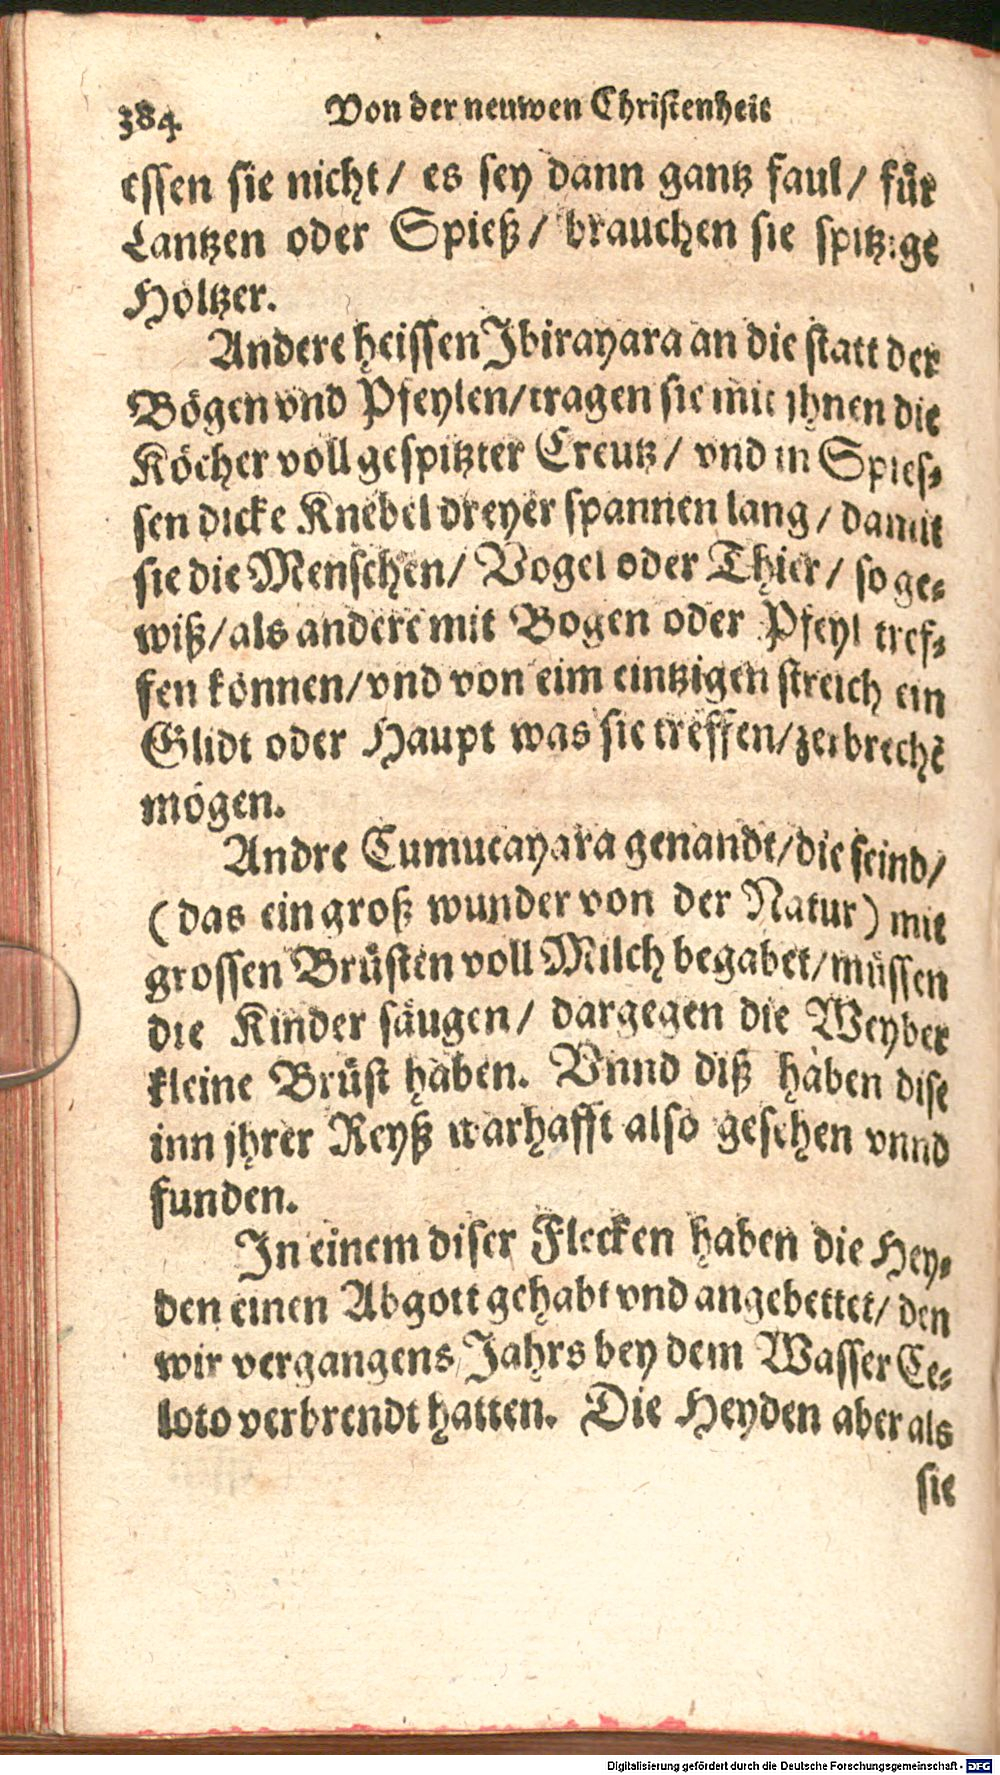 384. Von der neuwen Christenheit
essen sie nicht/ es sey dann gantz faul/ für
Lantzen oder Spieß/ brauchen sie spitzige
Höltzer.
Andere heissen Ibirayara an die statt der
Bögen vnd Pfeylen/ tragen sie mit jhnen die
Köcher voll gespitzter Creutz/ vnd in Spies-
sen dicke Knebel dreyer spannen lang/ damit
sie die Menschen/ Vogel oder Thier/ so ge-
wiß/ als andere mit Bogen oder Pfeyl tref-
fen können/ vnd von eim eintzigen streich ein
Glidt oder Haupt was sie treffen/ zerbrechẽ
mögen.
Andre Cumucayara genandt/ die seind/
(das ein groß wunder von der Natur) mit
grossen Brüsten voll Milch begabet/ müssen
die Kinder säugen/ dargegen die Weyber
kleine Brüst haben. Vnnd diß haben dise
inn jhrer Reyß warhafft also gesehen vnnd
funden.
In einem diser Flecken haben die Hey-
den einen Abgott gehabt vnd angebettet/ den
wir vergangens Jahrs bey dem Wasser Ce-
loto verbrendt hatten. Die Heyden aber als
sie
Digitalisierung gefördert durch die Deutsche Forschungsgemeinschaft - DFG